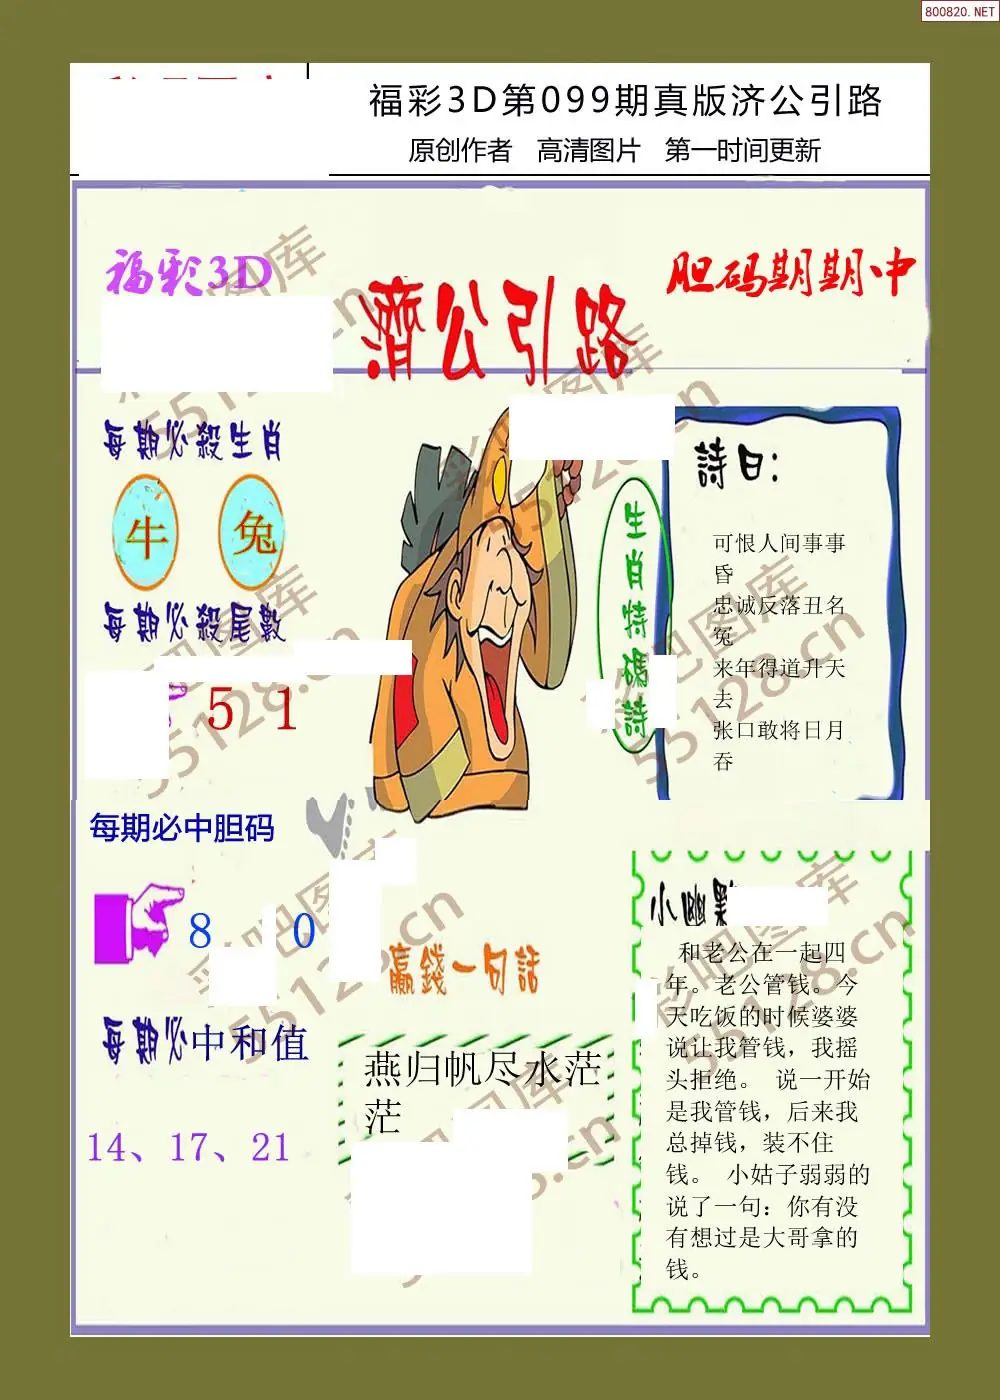 800820.NET
福彩3D第099期真版济公引路
原创作者 高清图片 第一时间更新
福彩3D
胆码期期中
濟公引路
每期必殺生肖
牛 兔
每期必殺尾數
5 1
生肖特碼詩
詩曰:
可恨人间事事
昏
忠诚反落丑名
冤
来年得道升天
去
张口敢将日月
吞
每期必中胆码
8 0
每期必中和值
14、17、21
贏錢一句話
燕归帆尽水茫
茫
小幽默
和老公在一起四
年。老公管钱。今
天吃饭的时候婆婆
说让我管钱，我摇
头拒绝。 说一开始
是我管钱，后来我
总掉钱，装不住
钱。 小姑子弱弱的
说了一句：你有没
有想过是大哥拿的
钱。
彩吧图库
55128.cn